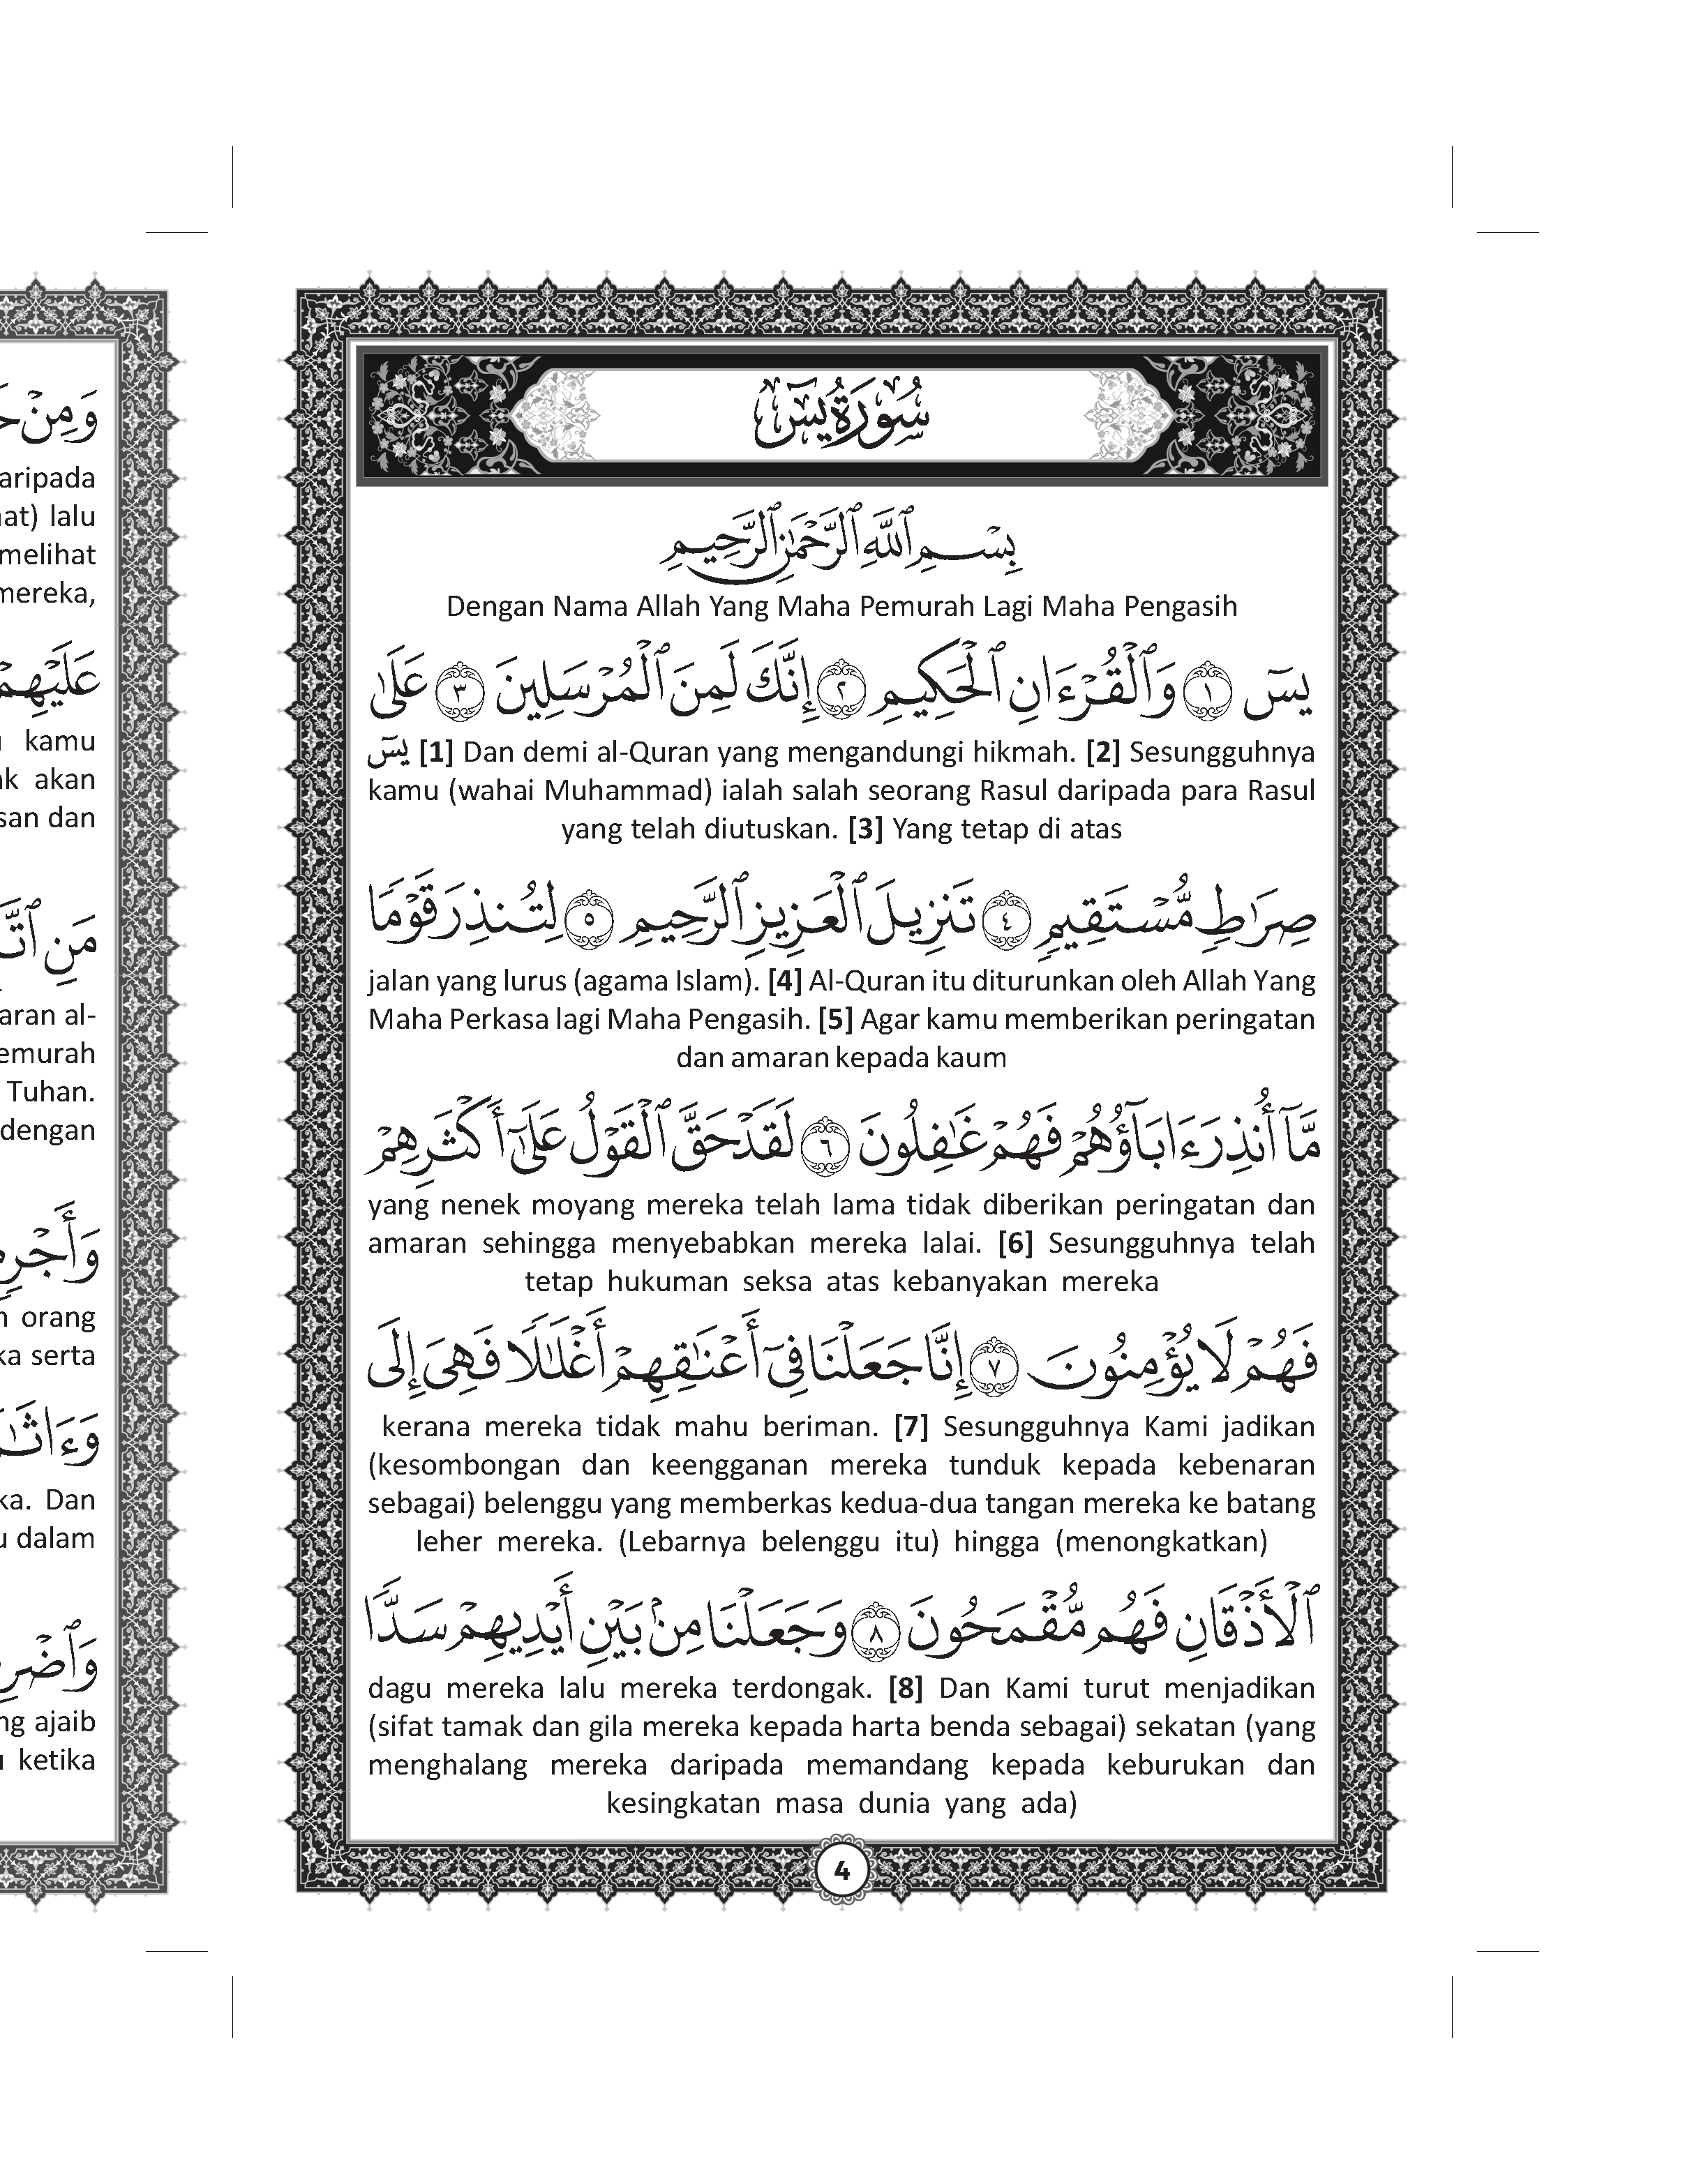 سُورَةُ يسٓ
بِسْمِ ٱللَّهِ ٱلرَّحْمَٰنِ ٱلرَّحِيمِ
Dengan Nama Allah Yang Maha Pemurah Lagi Maha Pengasih
يسٓ ١ وَٱلْقُرْءَانِ ٱلْحَكِيمِ ٢ إِنَّكَ لَمِنَ ٱلْمُرْسَلِينَ ٣ عَلَىٰ
يسٓ [1] Dan demi al-Quran yang mengandungi hikmah. [2] Sesungguhnya
kamu (wahai Muhammad) ialah salah seorang Rasul daripada para Rasul
yang telah diutuskan. [3] Yang tetap di atas
صِرَٰطٍ مُّسْتَقِيمٍ ٤ تَنزِيلَ ٱلْعَزِيزِ ٱلرَّحِيمِ ٥ لِتُنذِرَ قَوْمًا
jalan yang lurus (agama Islam). [4] Al-Quran itu diturunkan oleh Allah Yang
Maha Perkasa lagi Maha Pengasih. [5] Agar kamu memberikan peringatan
dan amaran kepada kaum
مَّآ أُنذِرَ ءَابَآؤُهُمْ فَهُمْ غَٰفِلُونَ ٦ لَقَدْ حَقَّ ٱلْقَوْلُ عَلَىٰٓ أَكْثَرِهِمْ
yang nenek moyang mereka telah lama tidak diberikan peringatan dan
amaran sehingga menyebabkan mereka lalai. [6] Sesungguhnya telah
tetap hukuman seksa atas kebanyakan mereka
فَهُمْ لَا يُؤْمِنُونَ ٧ إِنَّا جَعَلْنَا فِىٓ أَعْنَٰقِهِمْ أَغْلَٰلًا فَهِىَ إِلَى
kerana mereka tidak mahu beriman. [7] Sesungguhnya Kami jadikan
(kesombongan dan keengganan mereka tunduk kepada kebenaran
sebagai) belenggu yang memberkas kedua-dua tangan mereka ke batang
leher mereka. (Lebarnya belenggu itu) hingga (menongkatkan)
ٱلْأَذْقَانِ فَهُم مُّقْمَحُونَ ٨ وَجَعَلْنَا مِنۢ بَيْنِ أَيْدِيهِمْ سَدًّا
dagu mereka lalu mereka terdongak. [8] Dan Kami turut menjadikan
(sifat tamak dan gila mereka kepada harta benda sebagai) sekatan (yang
menghalang mereka daripada memandang kepada keburukan dan
kesingkatan masa dunia yang ada)
4
وَمِنْ
lalu
melihat
mereka,
عَلَيْهِمْ
kamu
akan
dan
مَنِ
al-
Tuhan.
dengan
orang
serta
Dan
dalam
ajaib
ketika